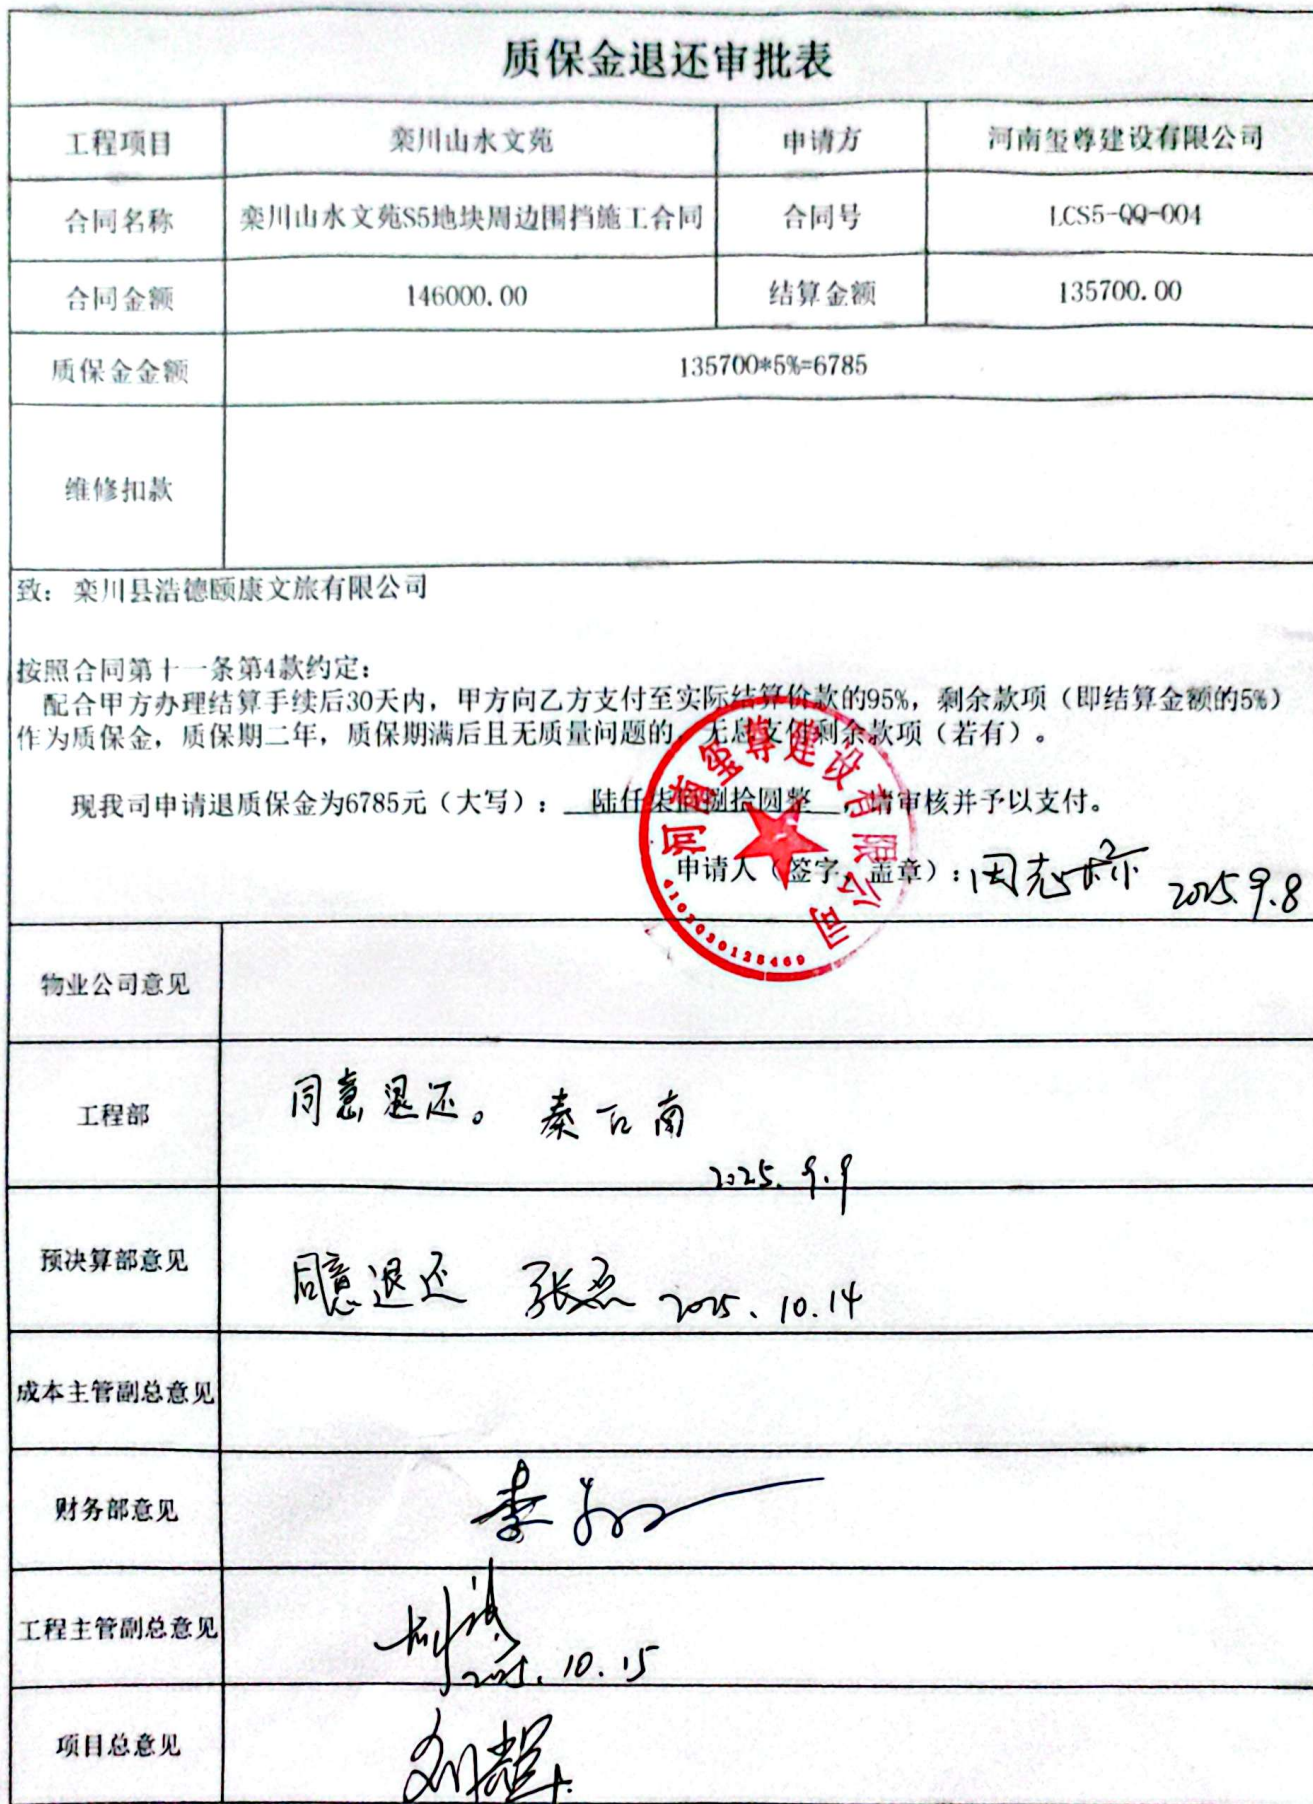 质保金退还审批表
工程项目 栾川山水文苑 申请方 河南玺尊建设有限公司
合同名称 栾川山水文苑S5地块周边围挡施工合同 合同号 LCS5-QQ-004
合同金额 146000.00 结算金额 135700.00
质保金金额 135700*5%=6785
维修扣款
致：栾川县浩德颐康文旅有限公司
按照合同第十一条第4款约定：
配合甲方办理结算手续后30天内，甲方向乙方支付至实际结算价款的95%，剩余款项（即结算金额的5%）
作为质保金，质保期二年，质保期满后且无质量问题的，无息支付剩余款项（若有）。
现我司申请退质保金为6785元（大写）： 陆仟柒佰捌拾圆整 ，请审核并予以支付。
申请人（签字、盖章）： 2025.9.8
河南玺尊建设有限公司
物业公司意见
工程部 同意退还。 2025.9.9
预决算部意见 同意退还 2025.10.14
成本主管副总意见
财务部意见 李
工程主管副总意见 2025.10.15
项目总意见